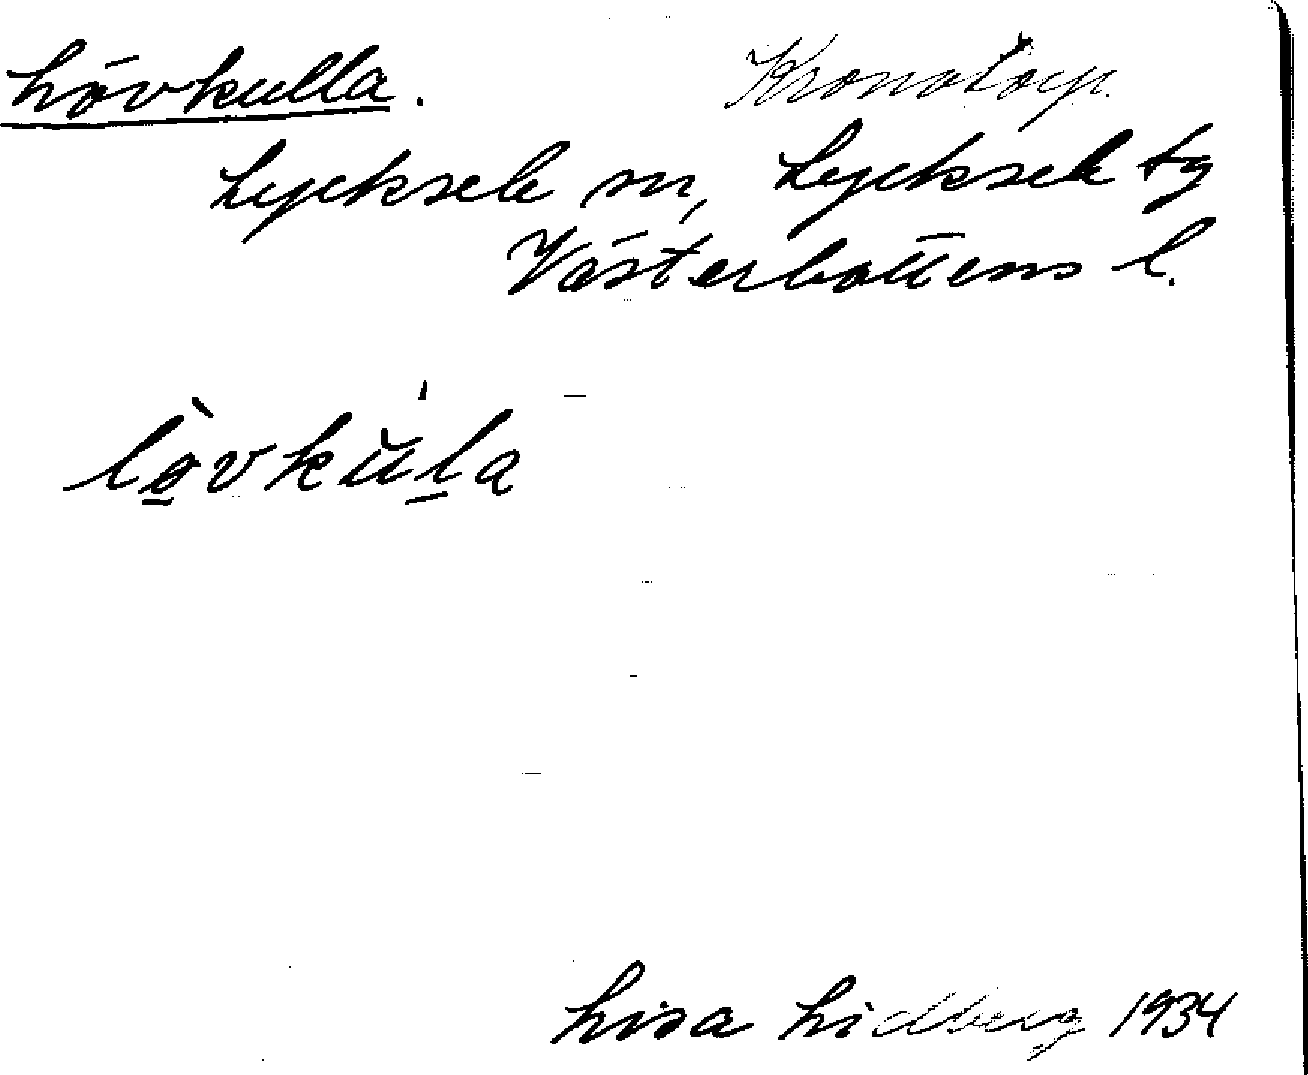 Lövkulla. Kronotorp.
Lycksele sn, Lycksele tg
Västerbottens l.
Lisa Lidberg 1934